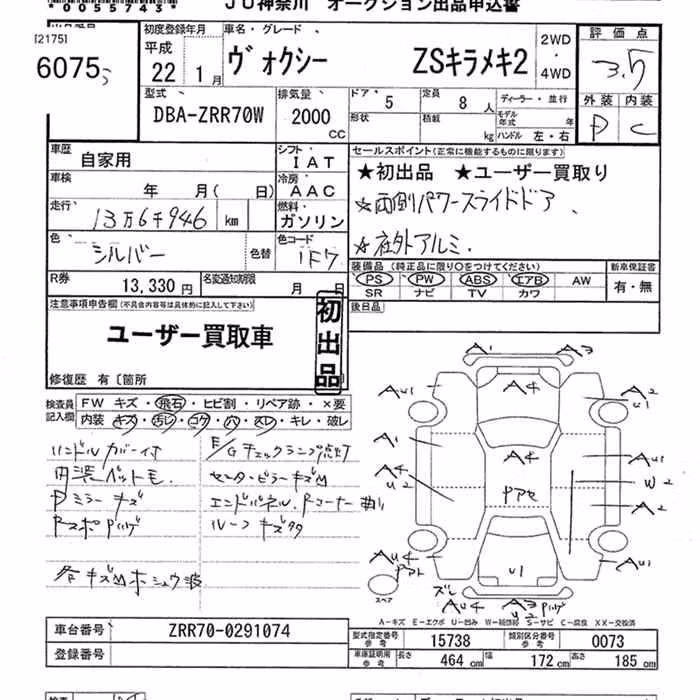 *0055743*
JU神奈川 オークション出品申込書
[2175]
6075
初度登録年月
平成
22 年 1 月
車名・グレード
ヴォクシー ZSキラメキ2
2WD
・
4WD
評価点
3.5
外装 内装
D C
型式
DBA-ZRR70W
排気量
2000
CC
ドア
5
定員
8 人
ディーラー・並行
形状
積載
kg
モデル年式 年
ハンドル 左・右
車歴
自家用
シフト
IAT
セールスポイント(正常に機能するものに限ります)
★初出品 ★ユーザー買取り
車検
年 月( 日)
冷房
AAC
★両側パワースライドドア、
走行
13万6千946 km
燃料
ガソリン
色
シルバー
色替
色コード
1F7
★社外アルミ.
装備品(純正品に限り○をつけてください)
新車保証書
PS PW ABS エアB AW
有・無
SR ナビ TV カワ
R券
13,330 円
名変通知期限
月 日
後日品
注意事項申告欄(不具合内容等は具体的に記入して下さい)
ユーザー買取車
初出品
修復歴 有〔箇所
検査員記入欄
FW キズ・飛石・ヒビ割・リペア跡・×要
内装・キズ・汚レ・コゲ・穴・スレ・キレ・破レ
ハンドルカバー付
E/Gチェックランプ点灯
内装ペットモ
センターピラーキズM
Dミラーキズ
エンドパネル.Rコーナー曲り
ルーフキズタタ
各キズM凹シュウ波
A1 A3
A4
AU1
A2
U1
A1
A4
U2
A4
AU1
W2
A2
AU4
U1
AU1
スペア
ズレ
AU4
A3
U2
A-キズ E-エクボ U-凹み W-補修跡 S-サビ C-腐食 XX-交換済
車台番号
ZRR70-0291074
登録番号
型式指定番号 参考
15738
類別区分番号 参考
0073
車庫証明用 参考
長さ 464 cm
幅 172 cm
高さ 185 cm